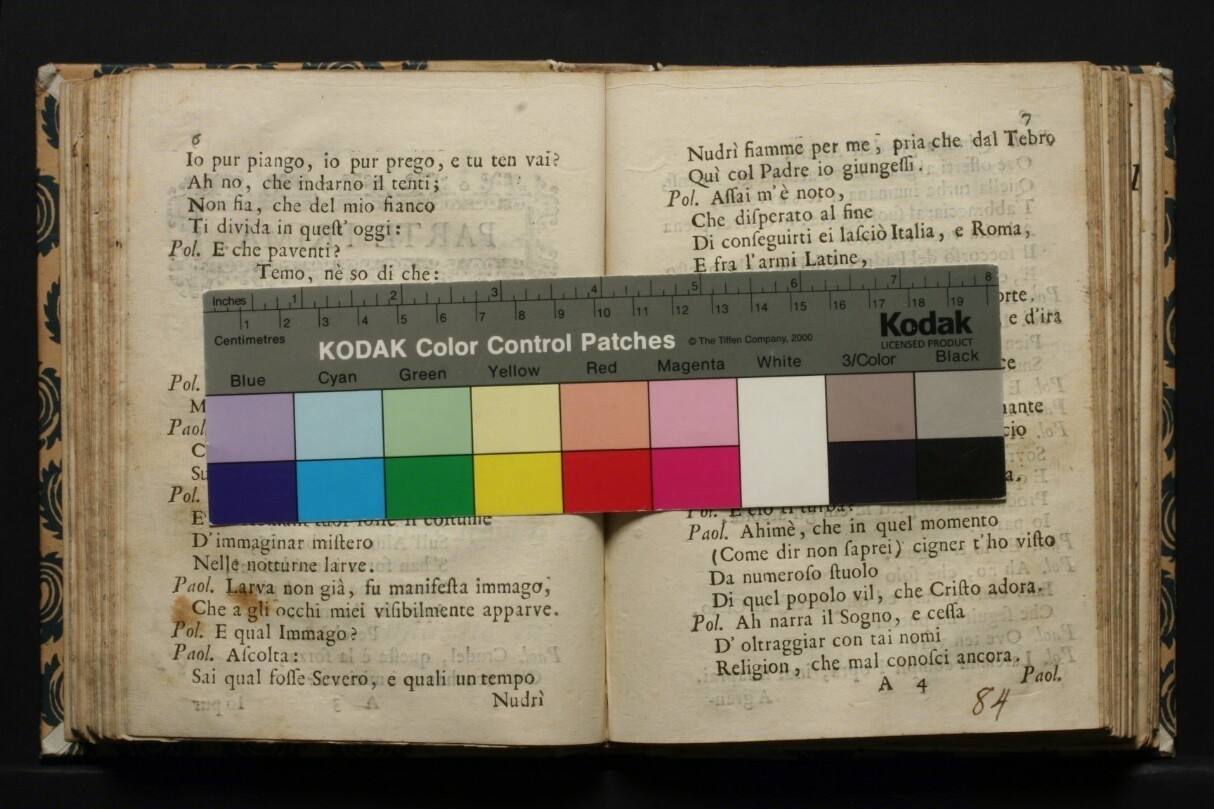 6
Io pur piango, io pur prego, e tu ten vai?
Ah no, che indarno il tenti;
Non fia, che del mio fianco
Ti divida in queſt' oggi:
Pol. E che paventi?
Temo, nè so di che:
Pol.
M
Paol
C
Su
Pol.
coſtume
D'immaginar miſtero
Nelle notturne larve.
Paol. Larva non già, fu manifeſta immago,
Che a gli occhi miei viſibilmente apparve.
Pol. E qual Immago?
Paol. Aſcolta:
Sai qual foſſe Severo, e quali un tempo
Nudrì
7
Nudrì fiamme per me, pria che dal Tebro
Quì col Padre io giungeſſi.
Pol. Aſſai m'è noto,
Che diſperato al fine
Di conſeguirti ei laſciò Italia, e Roma,
E fra l'armi Latine,
orte.
e d'ira
ce
nante
cio
a.
Pol. E ciò ti turba?
Paol. Ahimè, che in quel momento
(Come dir non ſaprei) cigner t'ho viſto
Da numeroſo ſtuolo
Di quel popolo vil, che Criſto adora.
Pol. Ah narra il Sogno, e ceſſa
D' oltraggiar con tai nomi
Religion, che mal conoſci ancora.
A 4
Paol.
84
Inches 1 2 3 4 5 6 7 8
1 2 3 4 5 6 7 8 9 10 11 12 13 14 15 16 17 18 19
Centimetres
KODAK Color Control Patches
© The Tiffen Company, 2000
Kodak
LICENSED PRODUCT
Blue Cyan Green Yellow Red Magenta White 3/Color Black